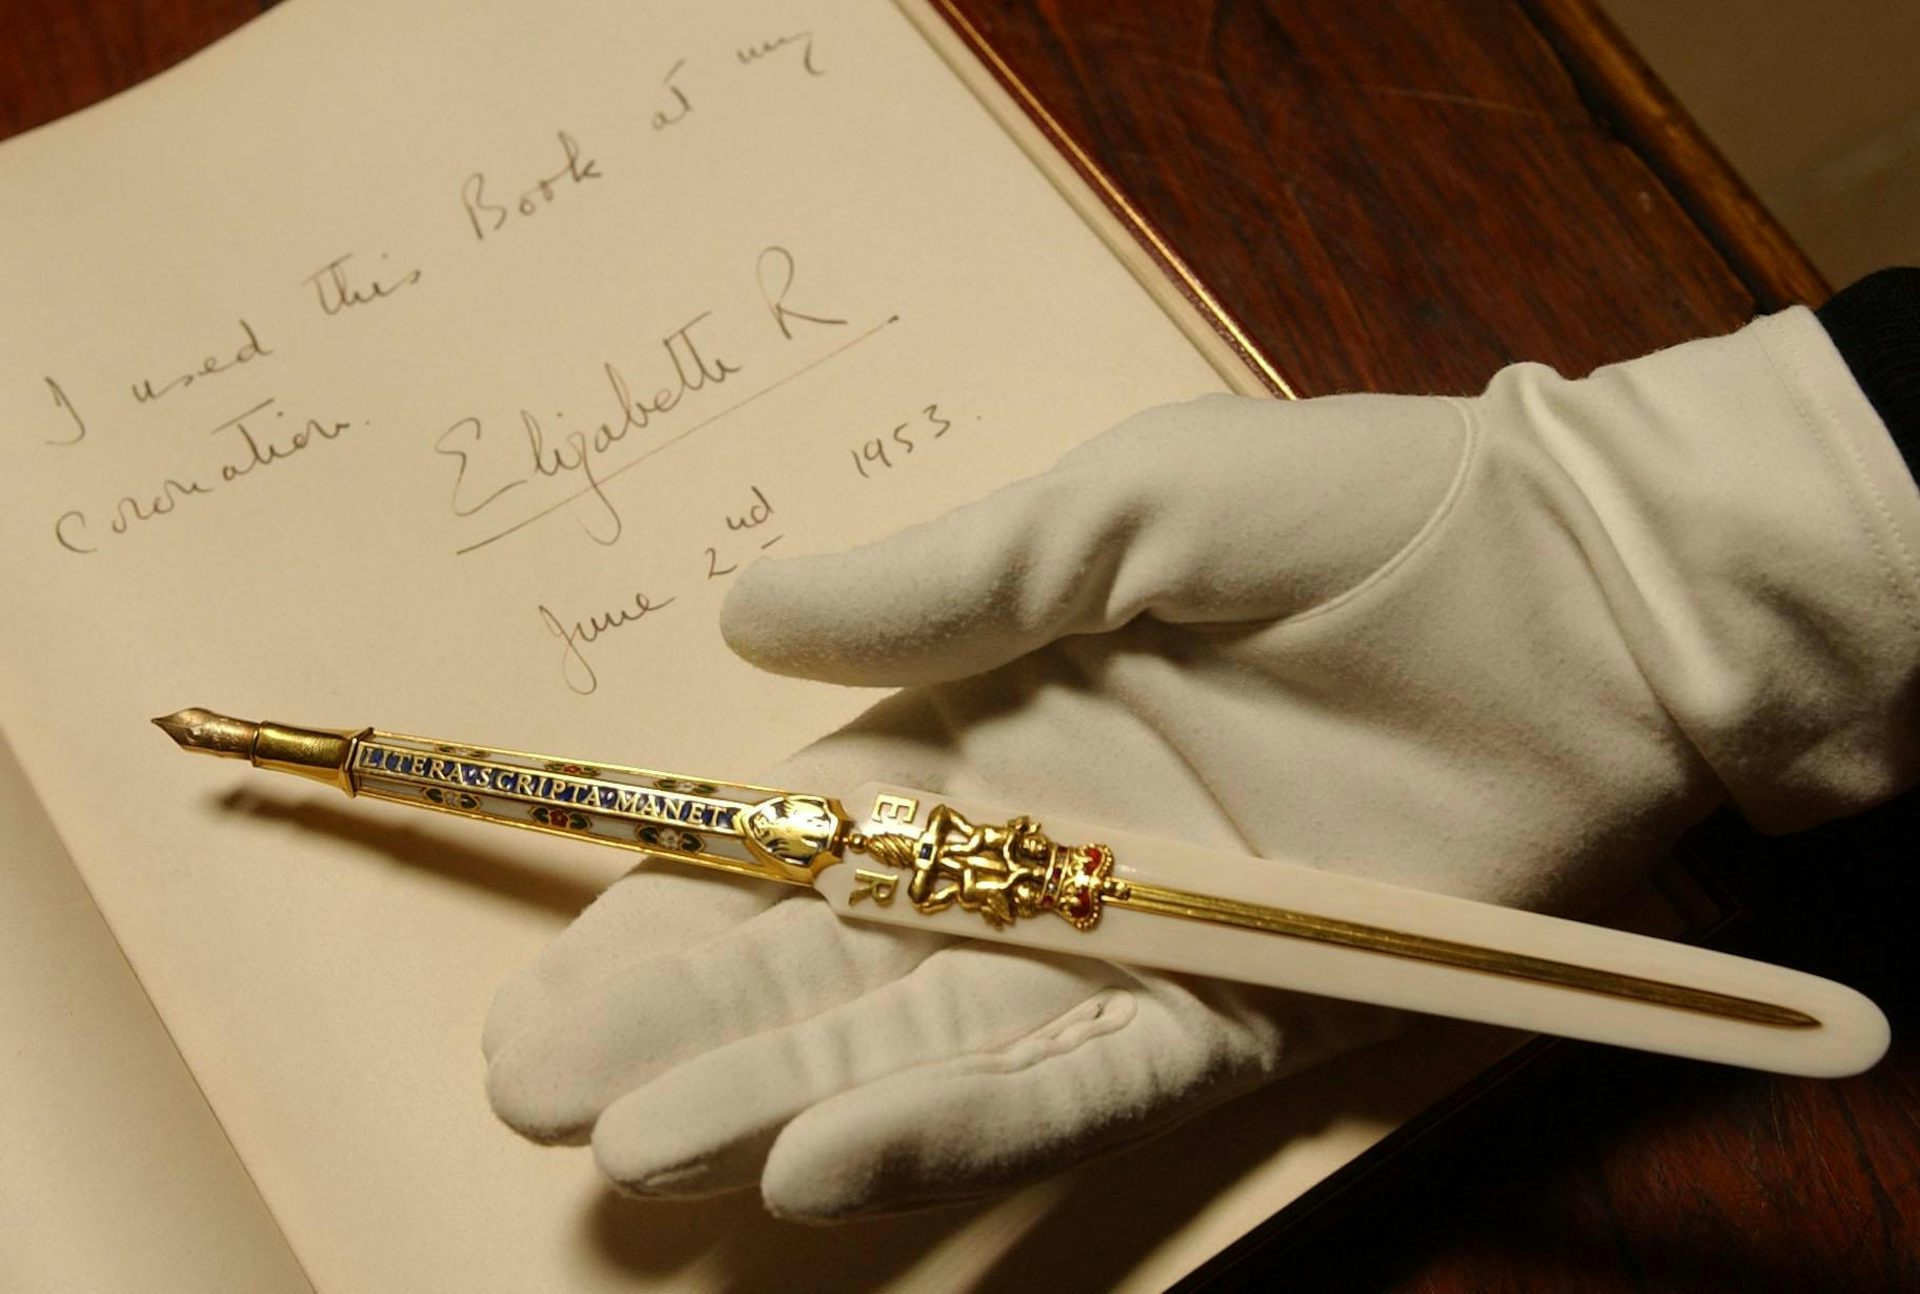 I used this Book at my
Coronation.
Elizabeth R
June 2nd 1953.
LITERA·SCRIPTA·MANET
E R